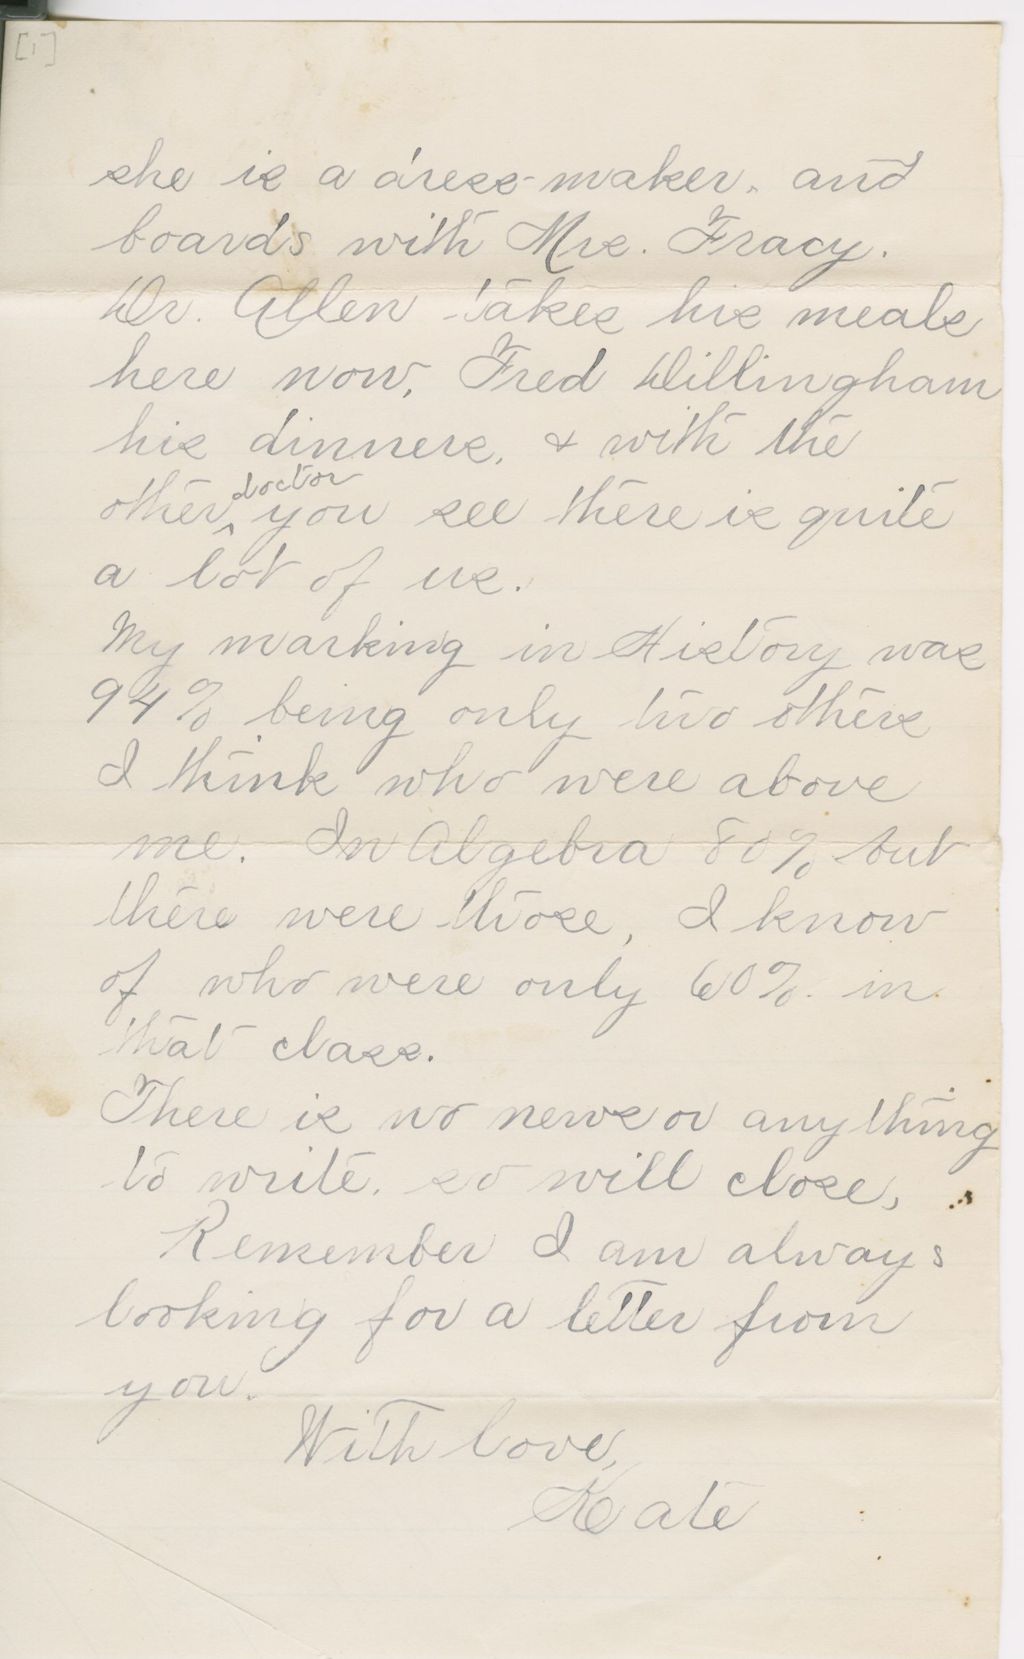 [1]
she is a dress-maker. and
boards with Mrs. Tracy.
Dr. Allen takes his meals
here now, Fred Dillingham
his dinners, & with the
other doctor you see there is quite
a lot of us.
My marking in History was
94% being only two others
I think who were above
me. In Algebra 80% but
there were those, I know
of who were only 60%. in
that class.
There is no news or anything
to write. so will close,
Remember I am always
looking for a letter from
you.
With love,
Kate